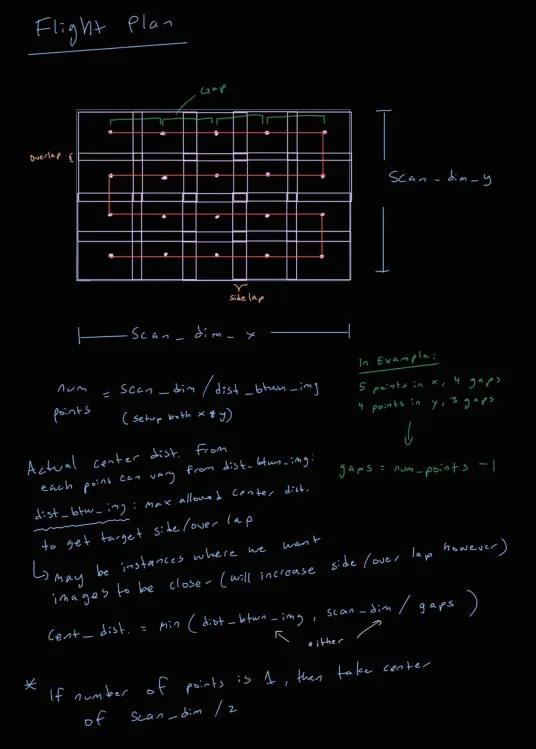 Flight Plan
Gap
overlap {
Scan_dim_y
side lap
Scan_dim_x
num points = Scan_dim / dist_btwn_img
(setup both x & y)
In Example:
5 points in x, 4 gaps
4 points in y, 3 gaps
gaps = num_points - 1
Actual center dist. from
each point can vary from dist_btwn_img:
dist_btw_img: max allowed center dist.
to get target side/over lap
↳ May be instances where we want
images to be closer (will increase side/over lap however)
Cent_dist. = min (dist_btwn_img, scan_dim / gaps)
either
* If number of points is 1, then take center
of scan_dim / 2